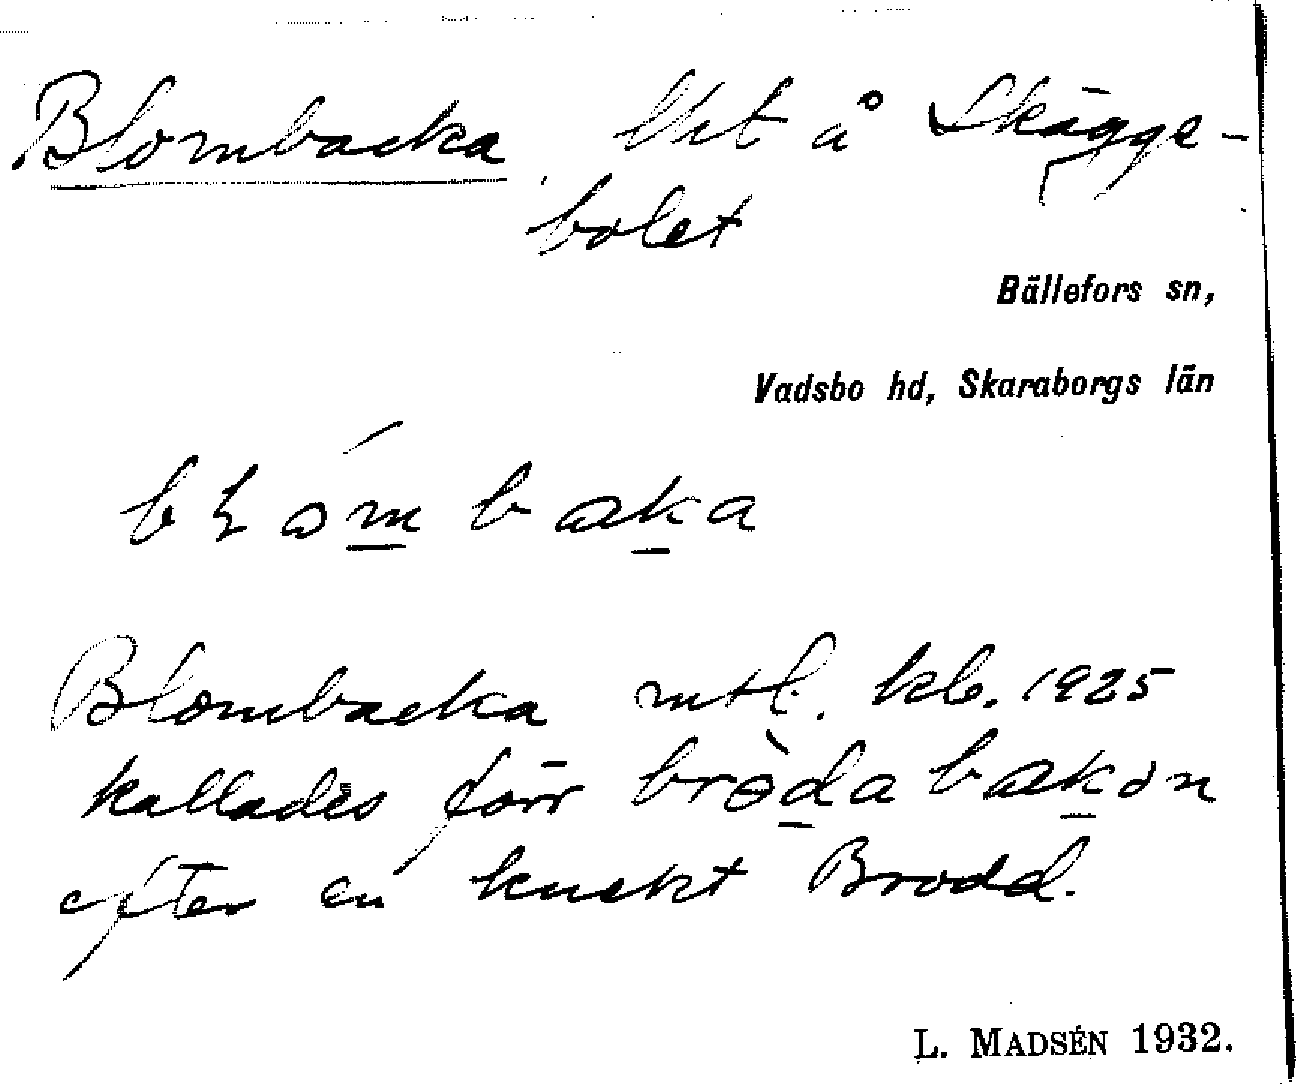 Blombacka lht å Skägge-
bolet
Bällefors sn,
Vadsbo hd, Skaraborgs län
bɽómbaka
Blombacka mtl. kb. 1925
kallades förr brɵ̀dabakɔn
efter en knekt Brodd.
L. MADSÉN 1932.